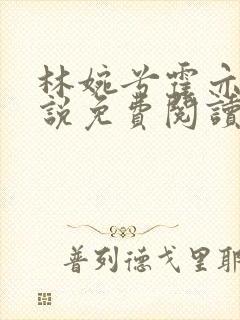 林婉兮霍亦
說免費閱讀
普列德戈里耶